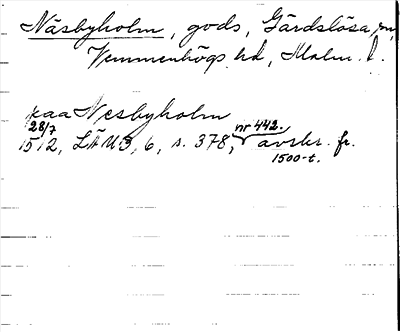 Näsbyholm, gods, Gärdslösa sn,
Vemmenhögs hd, Malm. l.
paa Nesbyholm
28/7 nr 442.
1512, LÄU3, 6, s. 378, avskr. fr.
1500-t.